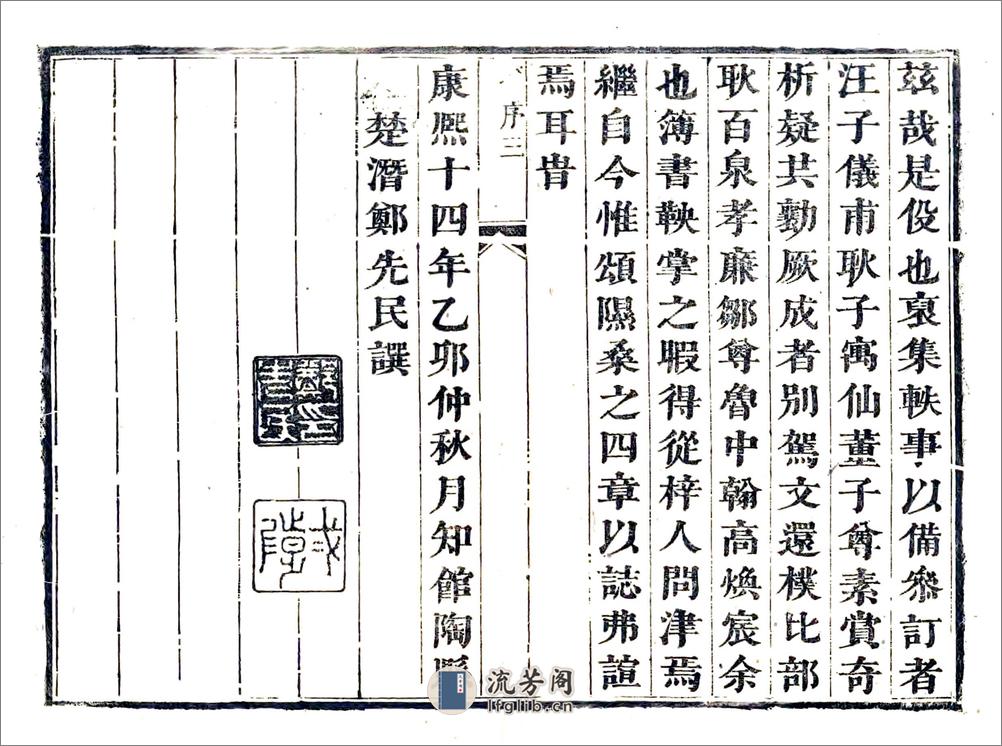 玆哉是役也裒集軼事以備叅訂者
汪子儀甫耿子寓仙董子尊素賞奇
析疑共勷厥成者別駕文還樸比部
耿百泉孝廉鄒尊魯中翰高煥宸余
也簿書鞅掌之暇得從梓人問津焉
繼自今惟頌隰桑之四章以誌弗諠
焉耳旹
序三
康熙十四年乙卯仲秋月知館陶縣
楚潛鄭先民譔
流芳阁
lfglib.cn